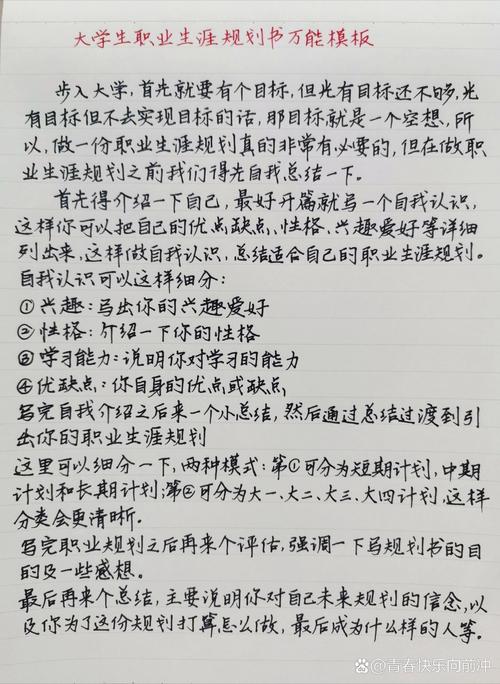 大学生职业生涯规划书万能模板
步入大学，首先就要有个目标，但光有目标还不够，光
有目标但不去实现目标的话，那目标就是一个空想，所
以，做一份职业生涯规划真的非常有必要的，但在做职
业生涯规划之前我们得先自我总结一下。
首先得介绍一下自己，最好开篇就写一个自我认识，
这样你可以把自己的优点缺点、性格、兴趣爱好等详细
列出来，这样做自我认识，总结适合自己的职业生涯规划。
自我认识可以这样细分：
①兴趣：写出你的兴趣爱好
②性格：介绍一下你的性格
③学习能力：说明你对学习的能力
④优缺点：你自身的优点或缺点
写完自我介绍之后来一个小总结，然后通过总结过渡到引
出你的职业生涯规划
这里可以细分一下，两种模式：第①可分为短期计划，中期
计划和长期计划；第②可分为大一、大二、大三、大四计划，这样
分类会更清晰。
写完职业规划之后再来个评估，强调一下写规划书的目
的及一些感想。
最后再来个总结，主要说明你对自己未来规划的信念，以
及你为了这份规划打算怎么做，最后成为什么样的人等。
@青春快乐向前冲